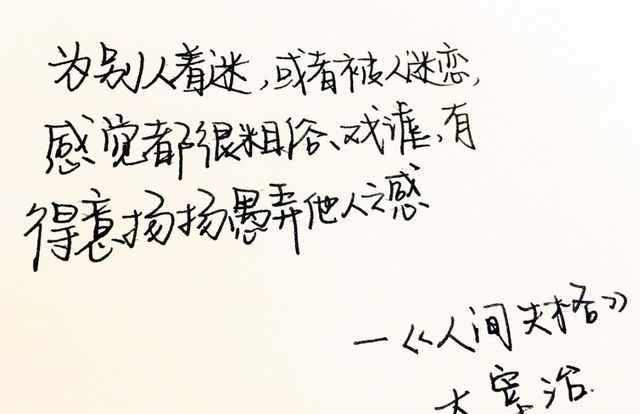 为别人着迷,或者被人迷恋,
感觉都很粗俗、戏谑,有
得意扬扬愚弄他人之感
—《人间失格》
太宰治